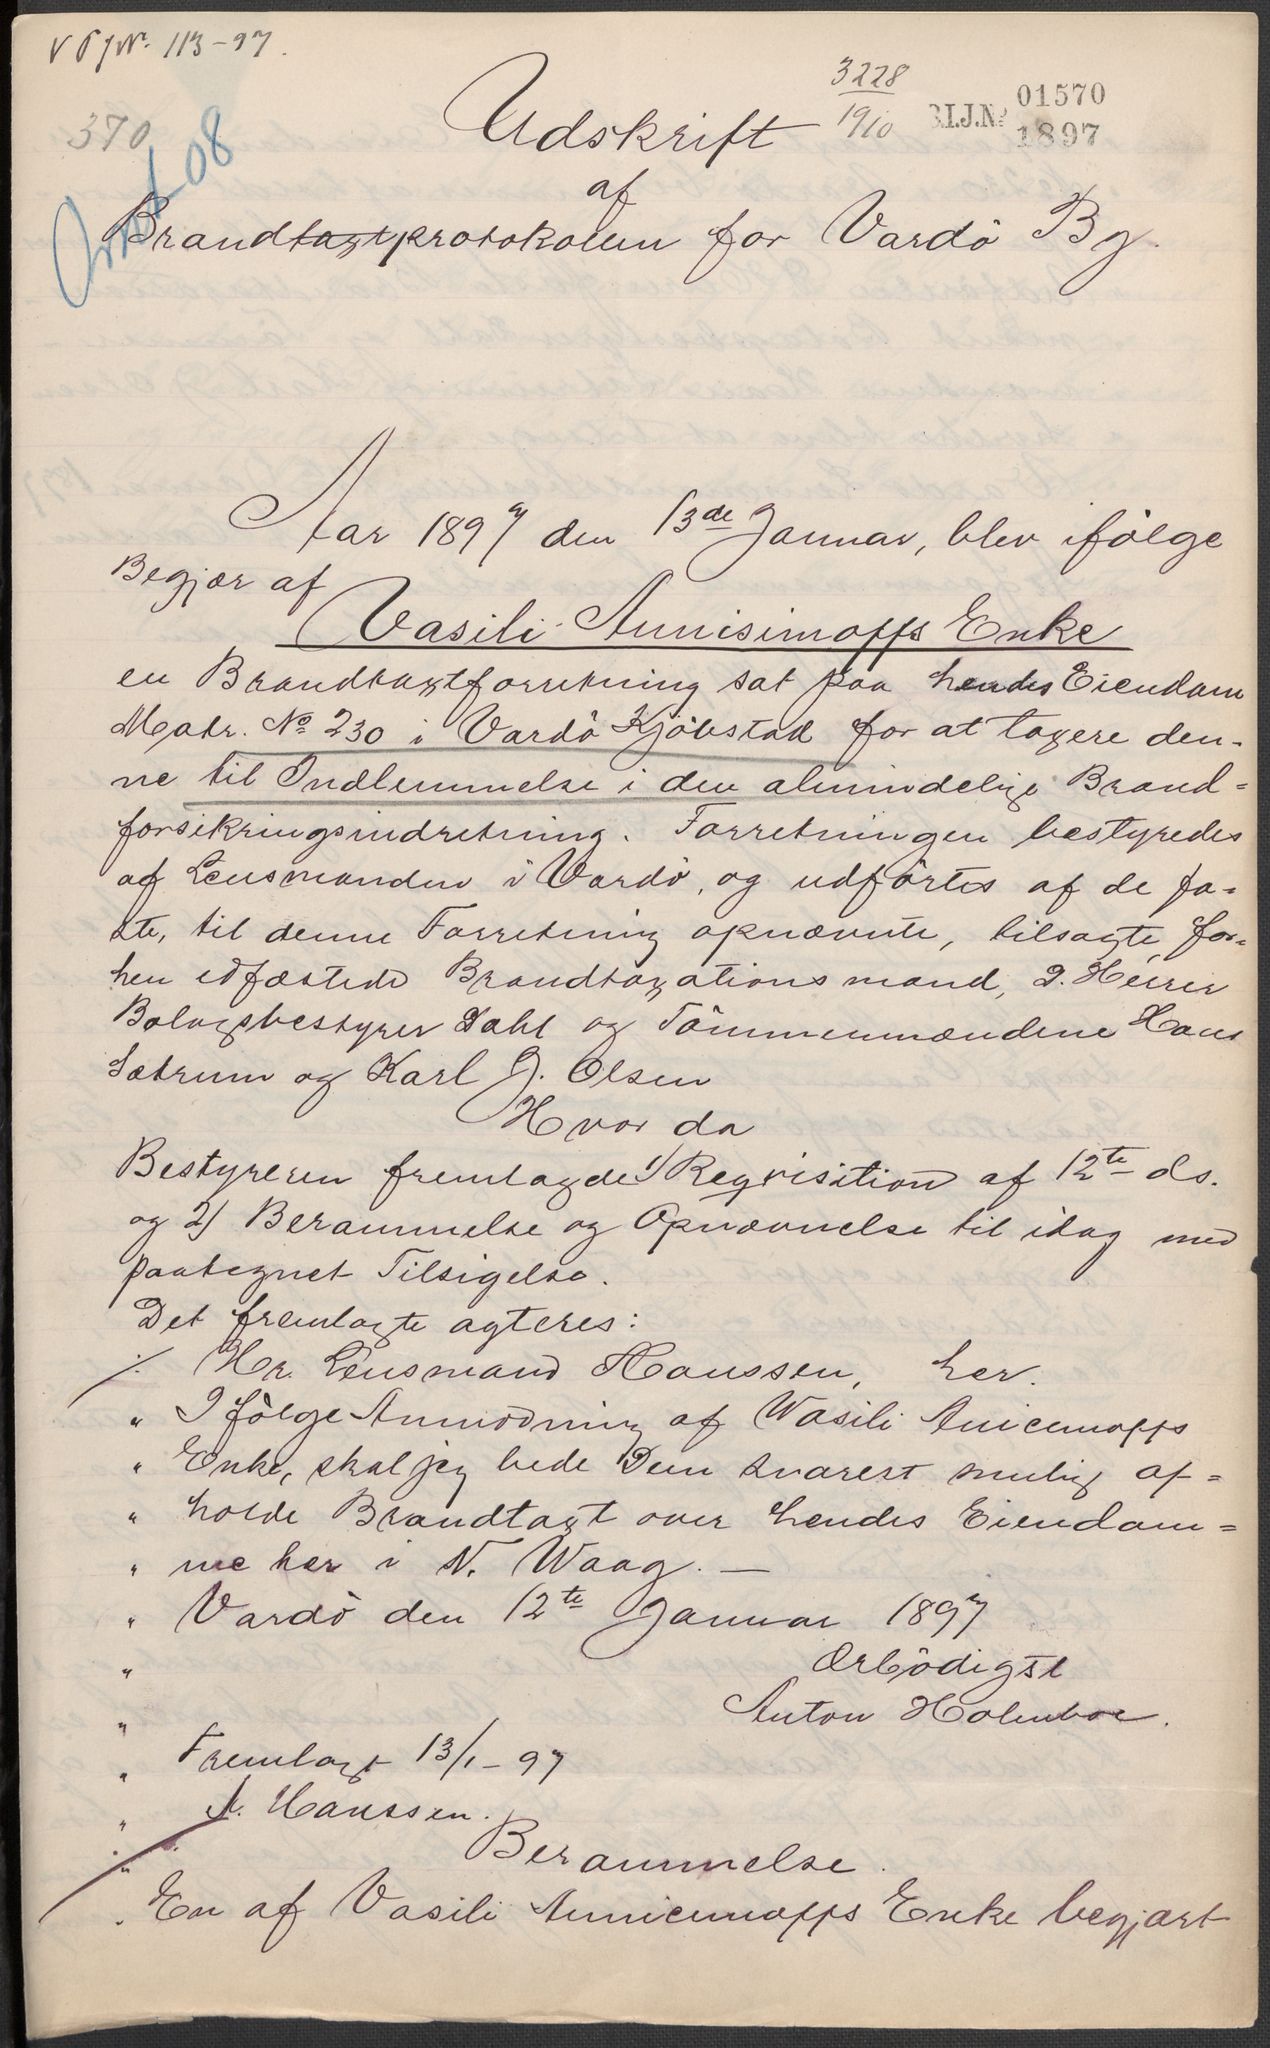 V P J Nr. 113-97.
370
3228
1910
B.I.J.No 01570
1897
Udskrift
af
Brandtaxtprotokolen for Vardö By.
Aar 1897 den 13de Januar, blev ifölge
Begjær af
Vasili Annisimoffs Enke
en Brandtaxtforretning sat paa hendes Eiendom
Matr. No 230 i Vardö Kjöbstad for at taxere den-
ne til Indlemmelse i den almindelige Brand=
forsikringsindretning. Forretningen bestyredes
af Lensmanden i Vardö, og udförtes af de fa=
ste, til denne Forretning opnævnte, tilsagte, for=
hen edfæstede Brandtaxationsmænd, D. Herrer
Bolagsbestyrer Dahl og Tömmermændene Hans
Sætrum og Karl J. Olsen
Hvor da
Bestyreren fremlagde 1) Reqvisition af 12te ds.
og 2) Berammelse og Opnævnelse til idag med
paategnet Tilsigelse.
Det fremlagte agteres:
./. Hr. Lensmand Hanssen, her.
" Ifölge Anmodning af Wasili Anicemoffs
" Enke, skal jeg bede Dem snarest mulig af=
" holde Brandtaxt over hendes Eiendom=
" me her i N. Waag. —
" Vardö den 12te Januar 1897
" Ærbödigst
" Anton Holmboe.
" Fremlagt 13/1-97
" A. Hanssen.
" Berammelse.
" En af Vasili Annicemoffs Enke begjært